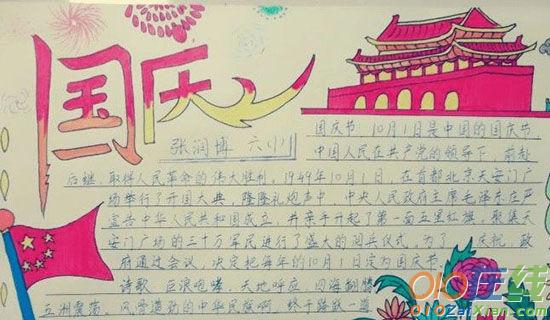 国庆
张润博 六(1)
国庆节 10月1日是中国的国庆节,
中国人民在共产党的领导下,前赴
后继,取得人民革命的伟大胜利,1949年10月1日,在首都北京天安门广
场举行了开国大典,隆隆礼炮声中,中央人民政府主席毛泽东庄严
宣告中华人民共和国成立,并亲手升起了第一面五星红旗,聚集天
安门广场的三十万军民进行了盛大的阅兵仪式,为了庆祝,政
府通过会议,决定把每年的10月1日定为国庆节。
诗歌 巨浪咆哮,天地呼应,四海翻腾
五洲震荡,风雷激动的中华民族啊 终于踏就一道
在线
ZaiXian.com